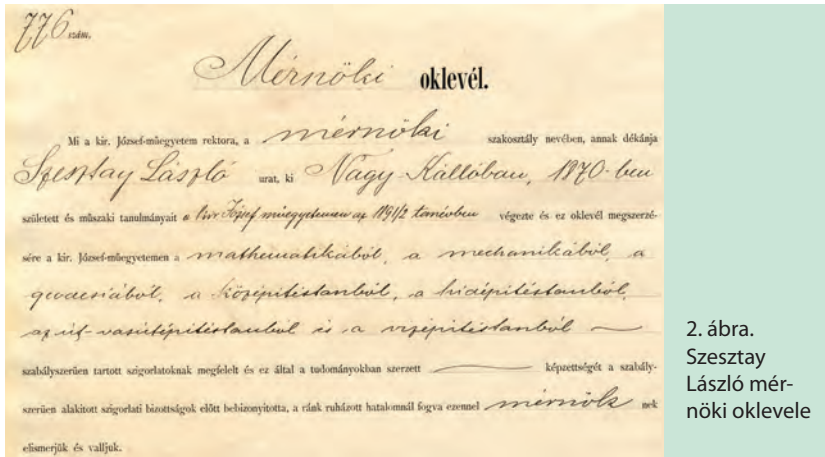 776 szám.
Mérnöki oklevél.
Mi a kir. József-műegyetem rektora, a mérnöki szakosztály nevében, annak dékánja
Szesztay László urat, ki Nagy-Kállóban, 1870-ben
született és műszaki tanulmányait a kir József műegyetemen az 1891/2 tanévben végezte és ez oklevél megszerzé-
sére a kir. József-műegyetemen a mathematikából, a mechanikából, a
geodesiából, a középitéstanból, a hidépitéstanból,
az út-vasútépitéstanból és a vizépitéstanból
szabályszerüen tartott szigorlatoknak megfelelt és ez által a tudományokban szerzett képzettségét a szabály-
szerüen alakitott szigorlati bizottságok előtt bebizonyitotta, a ránk ruházott hatalomnál fogva ezennel mérnök nek
elismerjük és valljuk.
2. ábra.
Szesztay
László mér-
nöki oklevele